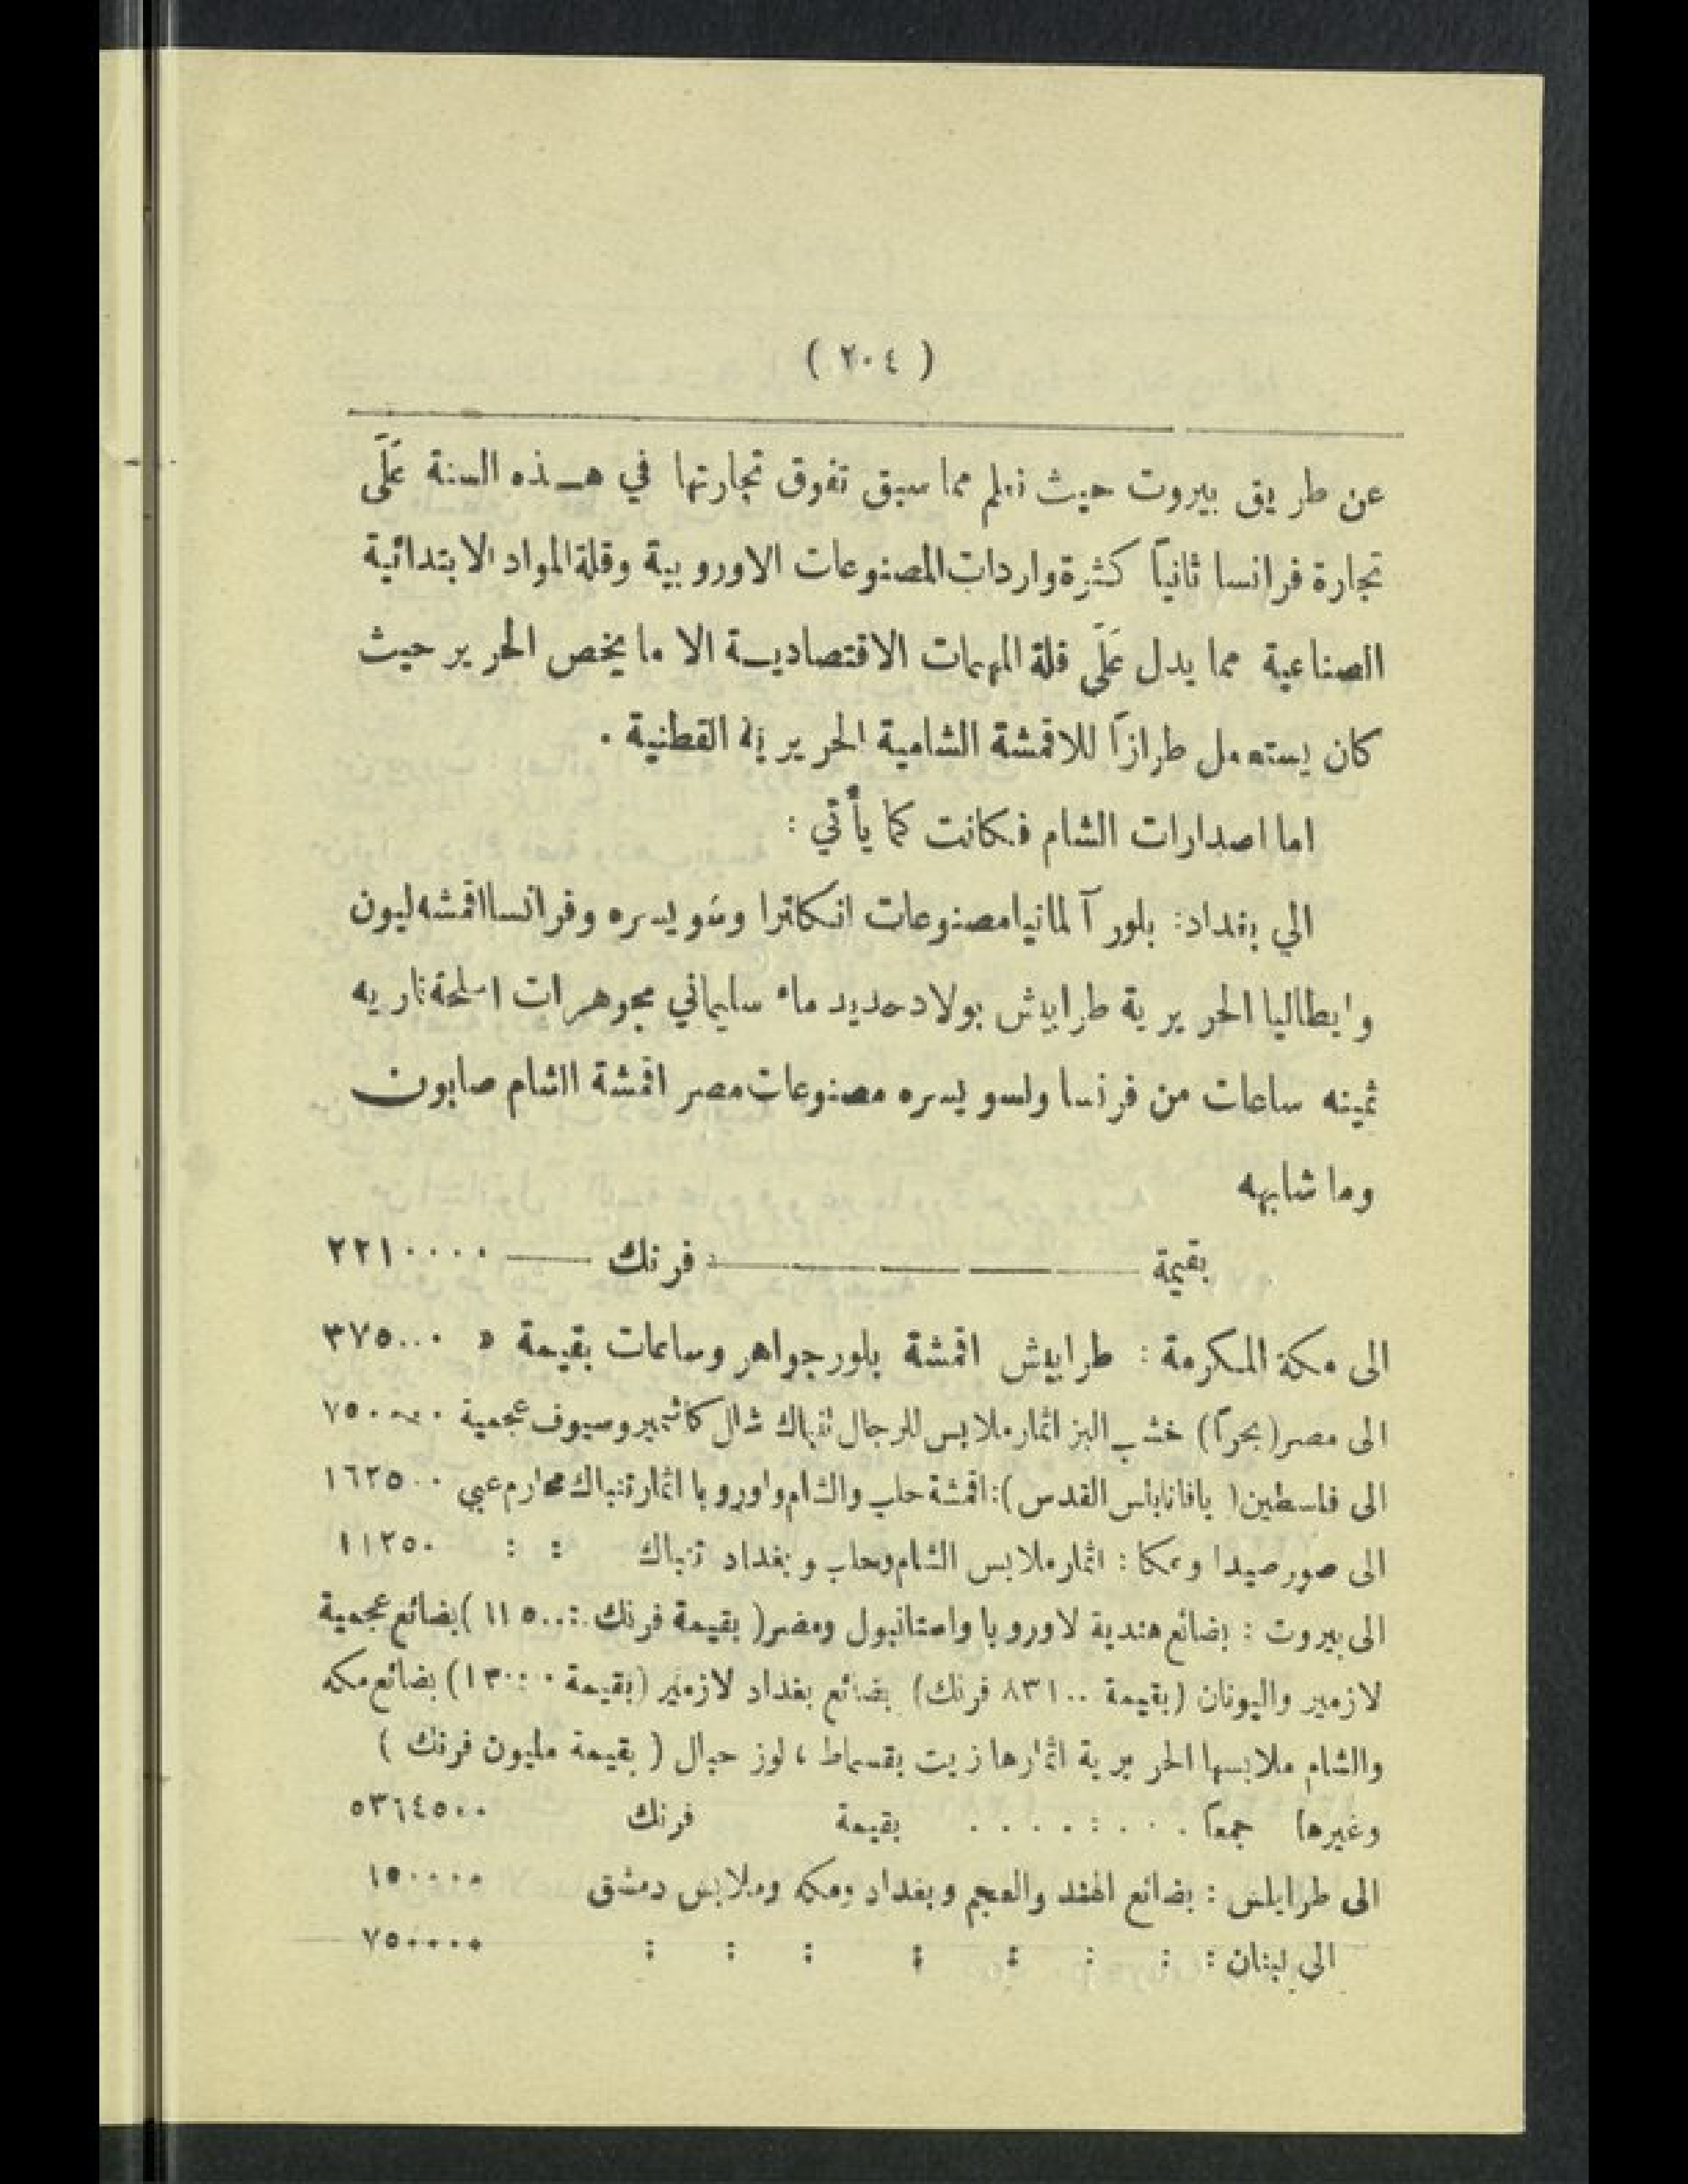 ( ٢٠٤ )
عن طريق بيروت حيث نعلم مما سبق تفوق تجارتها في هـذه السنة عَلَى
تجارة فرانسا ثانياً كثرة واردات المصنوعات الاوروبية وقلة المواد الابتدائية
الصناعية مما يدل عَلَى قلة المهمات الاقتصاديـة الا ما يخص الحرير حيث
كان يستعمل طرازاً للاقمشة الشامية الحريرية القطنية .
اما اصدارات الشام فكانت كما يأتي :
الي بغداد: بلور آلمانيا مصنوعات انكلترا وسويسره وفرانسا اقمشه ليون
وايطاليا الحريرية طرابيش بولاد حديد ماء سليماني مجوهرات اسلحة ناريه
ثمينه ساعات من فرنسا ولسويسره مصنوعات مصر اقمشة الشام صابون
وما شابهه
بقيمة ——— فرنك — ٢٢١٠٠٠٠
الى مكة المكرمة : طرابيش اقمشة بلور جواهر وساعات بقيمة » ٣٧٥٠٠٠
الى مصر (بحراً) خشب البز اثمار ملابس للرجال تنباك شال كاشمير وسيوف عجمية ٧٥٠٠٠٠
الى فلسطين ( يافا نابلس القدس ): اقمشة حلب والشام واوروبا اثمار تنباك محارم عبي ١٦٢٥٠٠
الى صور صيدا وعكا : اثمار ملابس الشام وحلب وبغداد تنباك : : ١١٢٥٠
الى بيروت : بضائع هندية لاوروبا واستانبول ومصر ( بقيمة فرنك ١١٥٠٠٠ ) بضائع عجمية
لازمير واليونان (بقيمة ٨٣١٠٠ فرنك) بضائع بغداد لازمير (بقيمة ١٣٠٠٠) بضائع مكه
والشام ملابسها الحريرية اثمارها زيت بقسماط ، لوز حبال ( بقيمة مليون فرنك )
وغيرها جمعاً . . . : . . . . . بقيمة فرنك ٥٣٦٤٥٠٠
الى طرابلس : بضائع الهند والعجم وبغداد ومكه وملابس دمشق ١٥٠٠٠٠
الى لبنان : : : : : : : : ٧٥٠٠٠٠